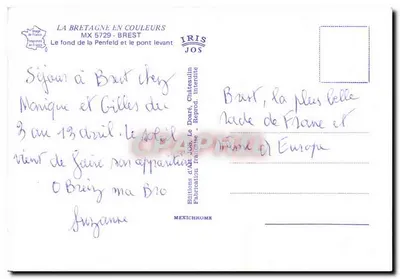 LA BRETAGNE EN COULEURS
MX 5729 - BREST
Le fond de la Penfeld et le pont levant
IRIS
JOS
Séjour à Brest chez
Monique et Gilles du
3 au 13 avril. Le soleil
vient de faire son apparition
O Breiz ma Bro
Suzanne
Editions d'Art Jos Le Doaré, Châteaulin
Fabrication française - Reprod. interdite
MEXICHROME
Brest, la plus belle
rade de France et
même d'Europe